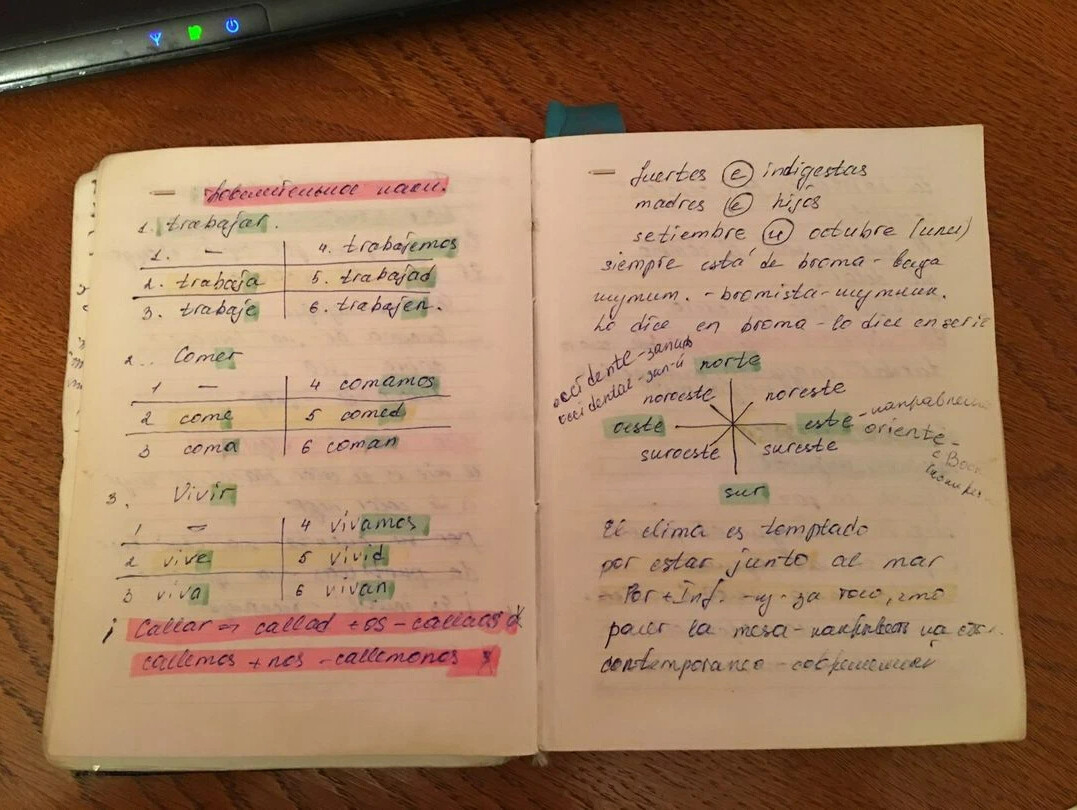 — Повелительное накл.
1. trabajar.
1. — 4. trabajemos
2. trabaja 5. trabajad
3. trabaje 6. trabajen.
2. Comer
1 — 4 comamos
2 come 5 comed
3 coma 6 coman
3. Vivir
1 — 4 vivamos
2 vive 5 vivid
3 viva 6 vivan
¡ Callar = callad + os - callaos
callemos + nos - callemonos
— fuertes e indigestas
madres e hijos
setiembre u octubre (или)
siempre está de broma - всегда
шутит. - bromista - шутник.
Lo dice en broma - lo dice en serie
occidente - запад
occidental - зап-й
norte
noroeste noreste
oeste este - направление
oriente -
suroeste sureste
sur
El clima es templado
por estar junto al mar
- Por + Inf. - из-за того, что
poner la mesa -
contemporaneo - современный